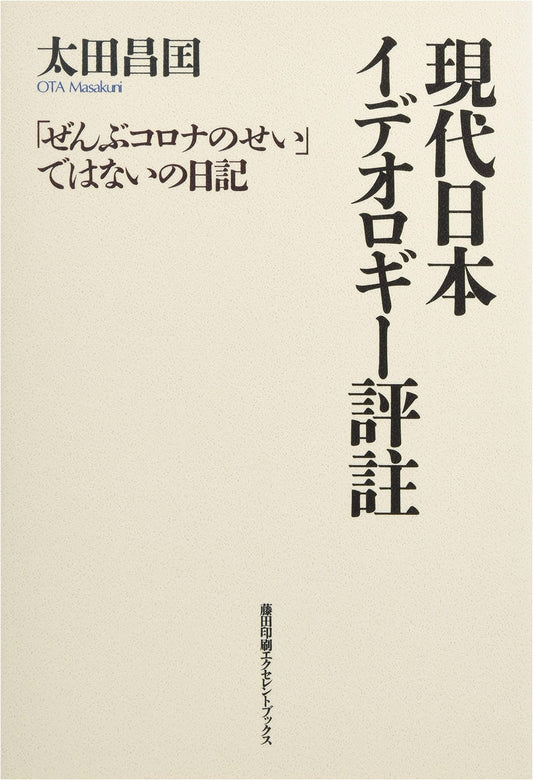 現代日本
イデオロギー評註
太田昌国
OTA Masakuni
「ぜんぶコロナのせい」
ではないの日記
藤田印刷エクセレントブックス